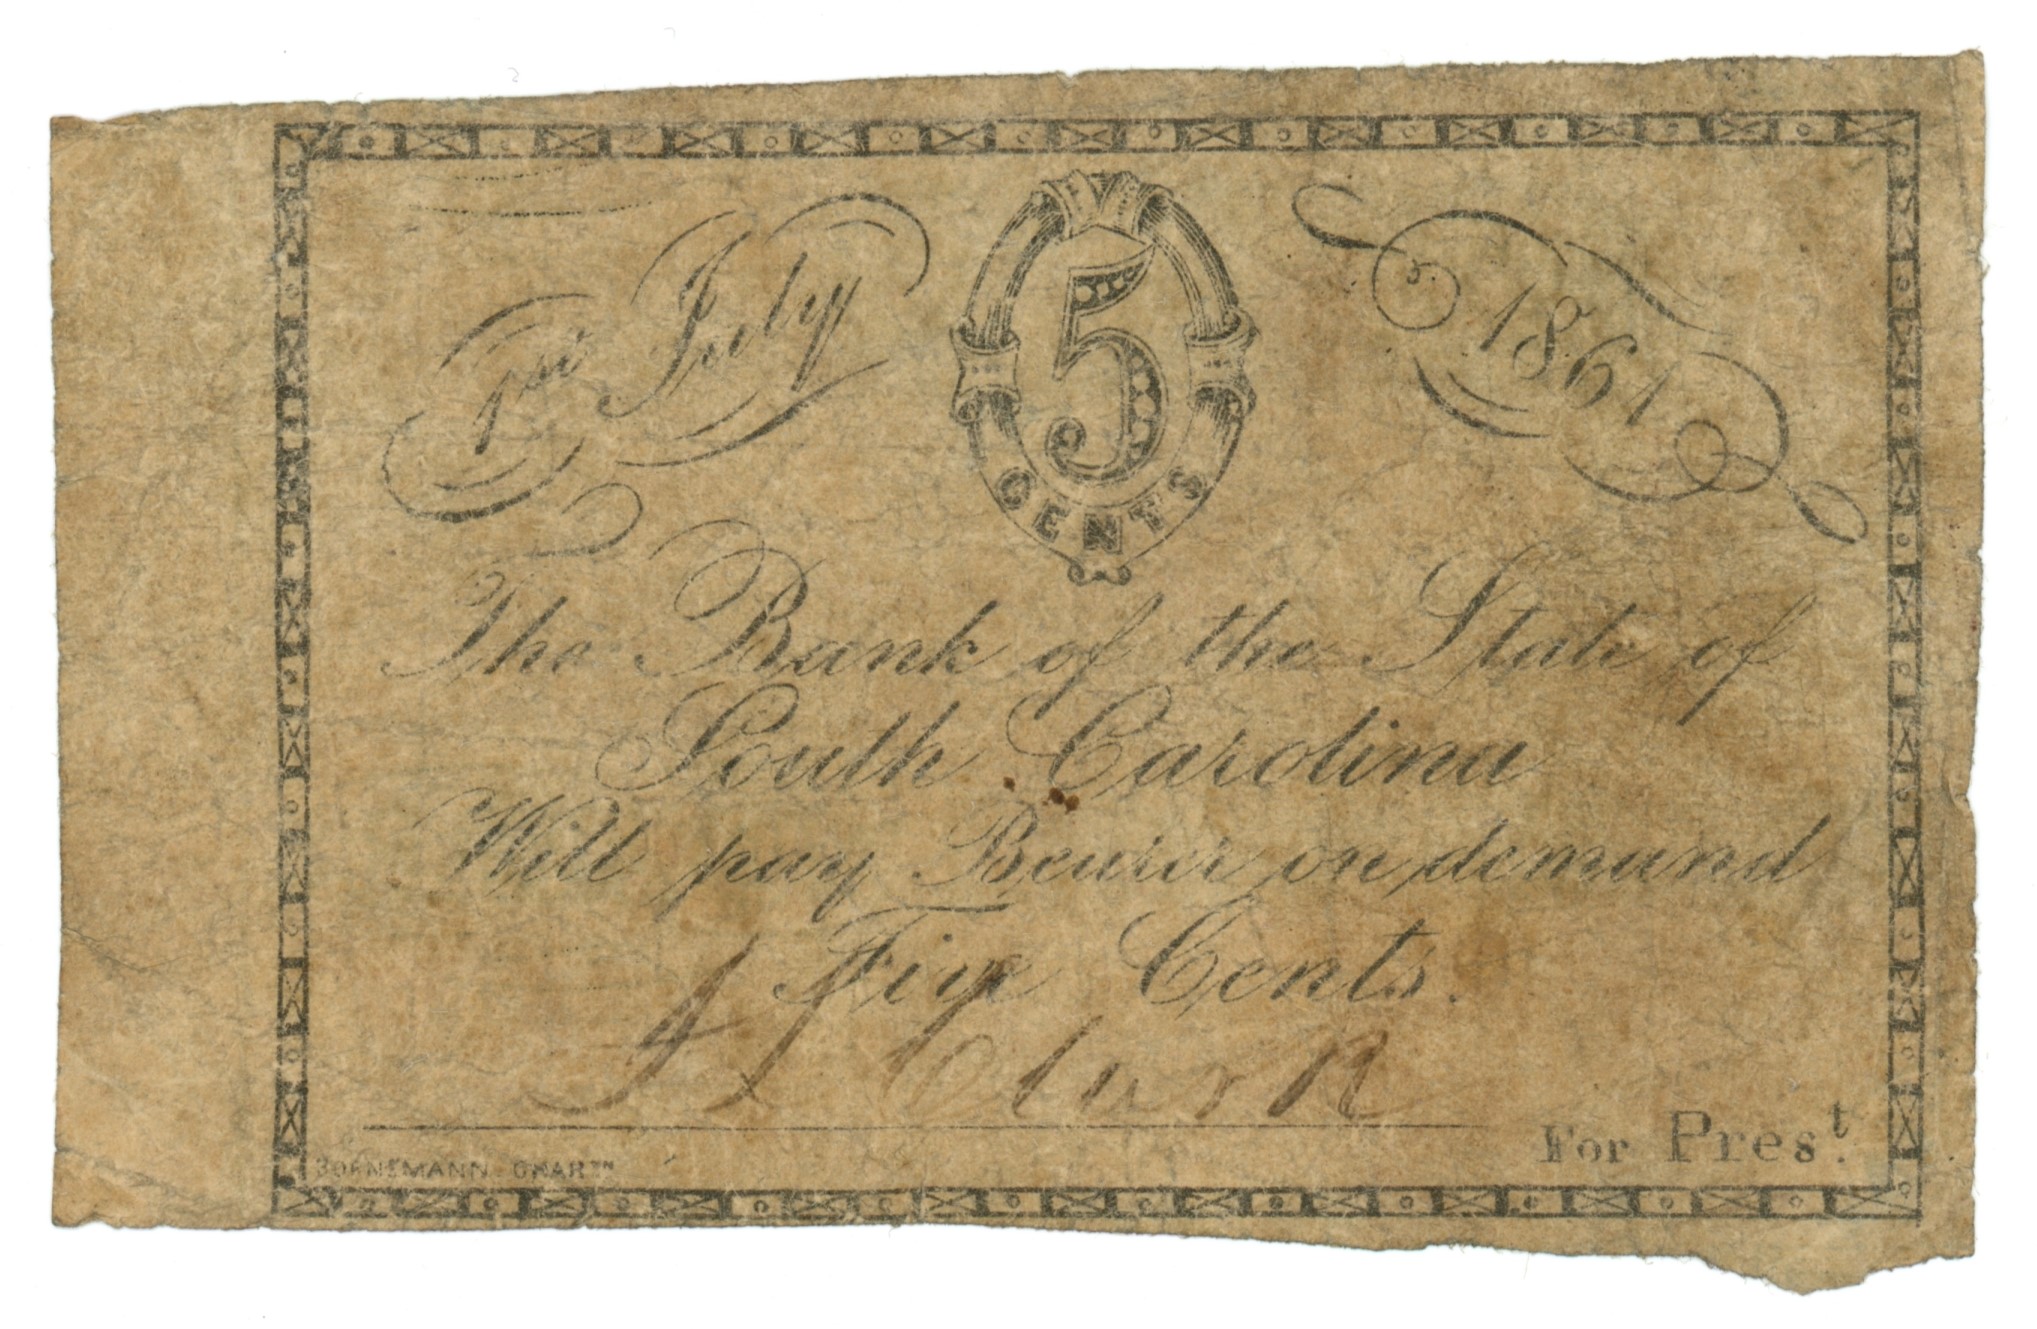 1st July
5
CENTS
1861
The Bank of the State of
South Carolina
Will pay Bearer on demand
Five Cents.
Clark
For Pres.t
BORNEMANN. CHAR.TN